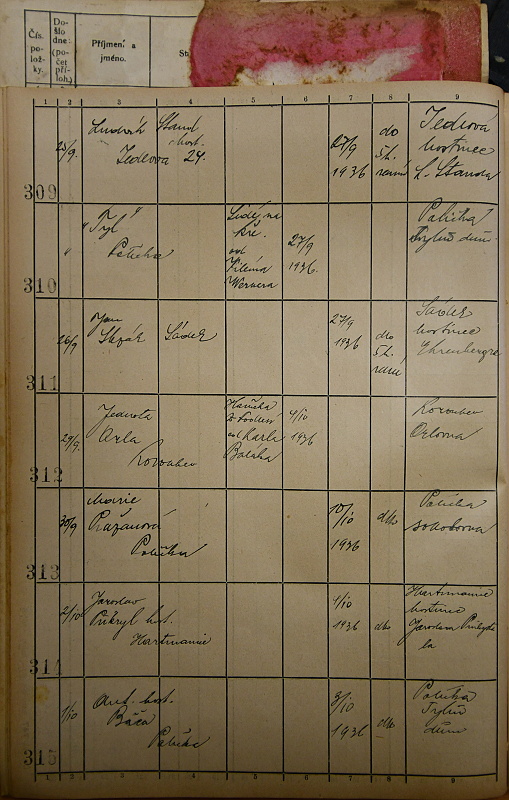 Čís.
po-
lož-
ky.
Do-
šlo
dne:
(po-
čet
pří-
loh.)
Příjmení a
jméno.
St
1 2 3 4 5 6 7 8 9
309
25/9.
Ludvík
Jedlova 24.
27/9
1936
do
5 h.
Jedlová
hostinec
L. Standa
310
"
"Tyl"
Polička
Lidé, na
kře.
od
Viléma
Wernera
27/9
1936.
Polička
Tylův dům
311
26/9
Jan
Sádek
27/9
1936
do
5 h.
Sádek
hostinec
Ehrenbergra
312
29/9.
Jednota
Orla
Korouhev
od Karla
4/10
1936
Korouhev
Orlovna
313
30/9
Marie
Pražanová
Polička
10/10
1936
dto
Polička
sokolovna
314
2/10
Jaroslav
Přikryl host.
Hartmanic
1/10
1936
dto
Hartmanic
hostinec
Jaroslava Přikry
la
315
1/10
Ant. host.
Báča
Polička
3/10
1936
dto
Polička
Tylův
dům
1 2 3 4 5 6 7 8 9